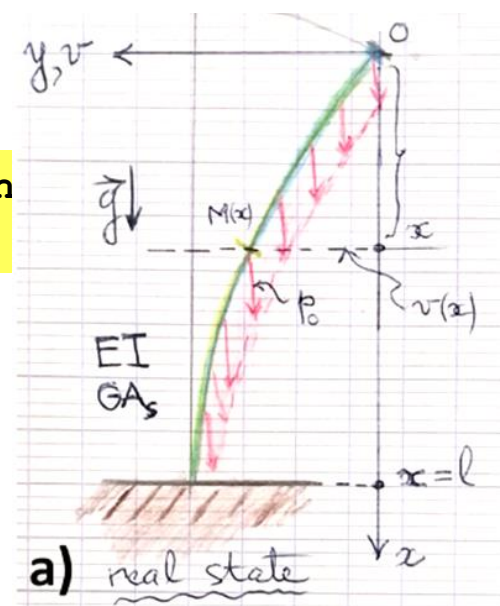 O
y, v
g
M(x)
x
p₀
v(x)
EI
GAₛ
x = l
x
a) real state